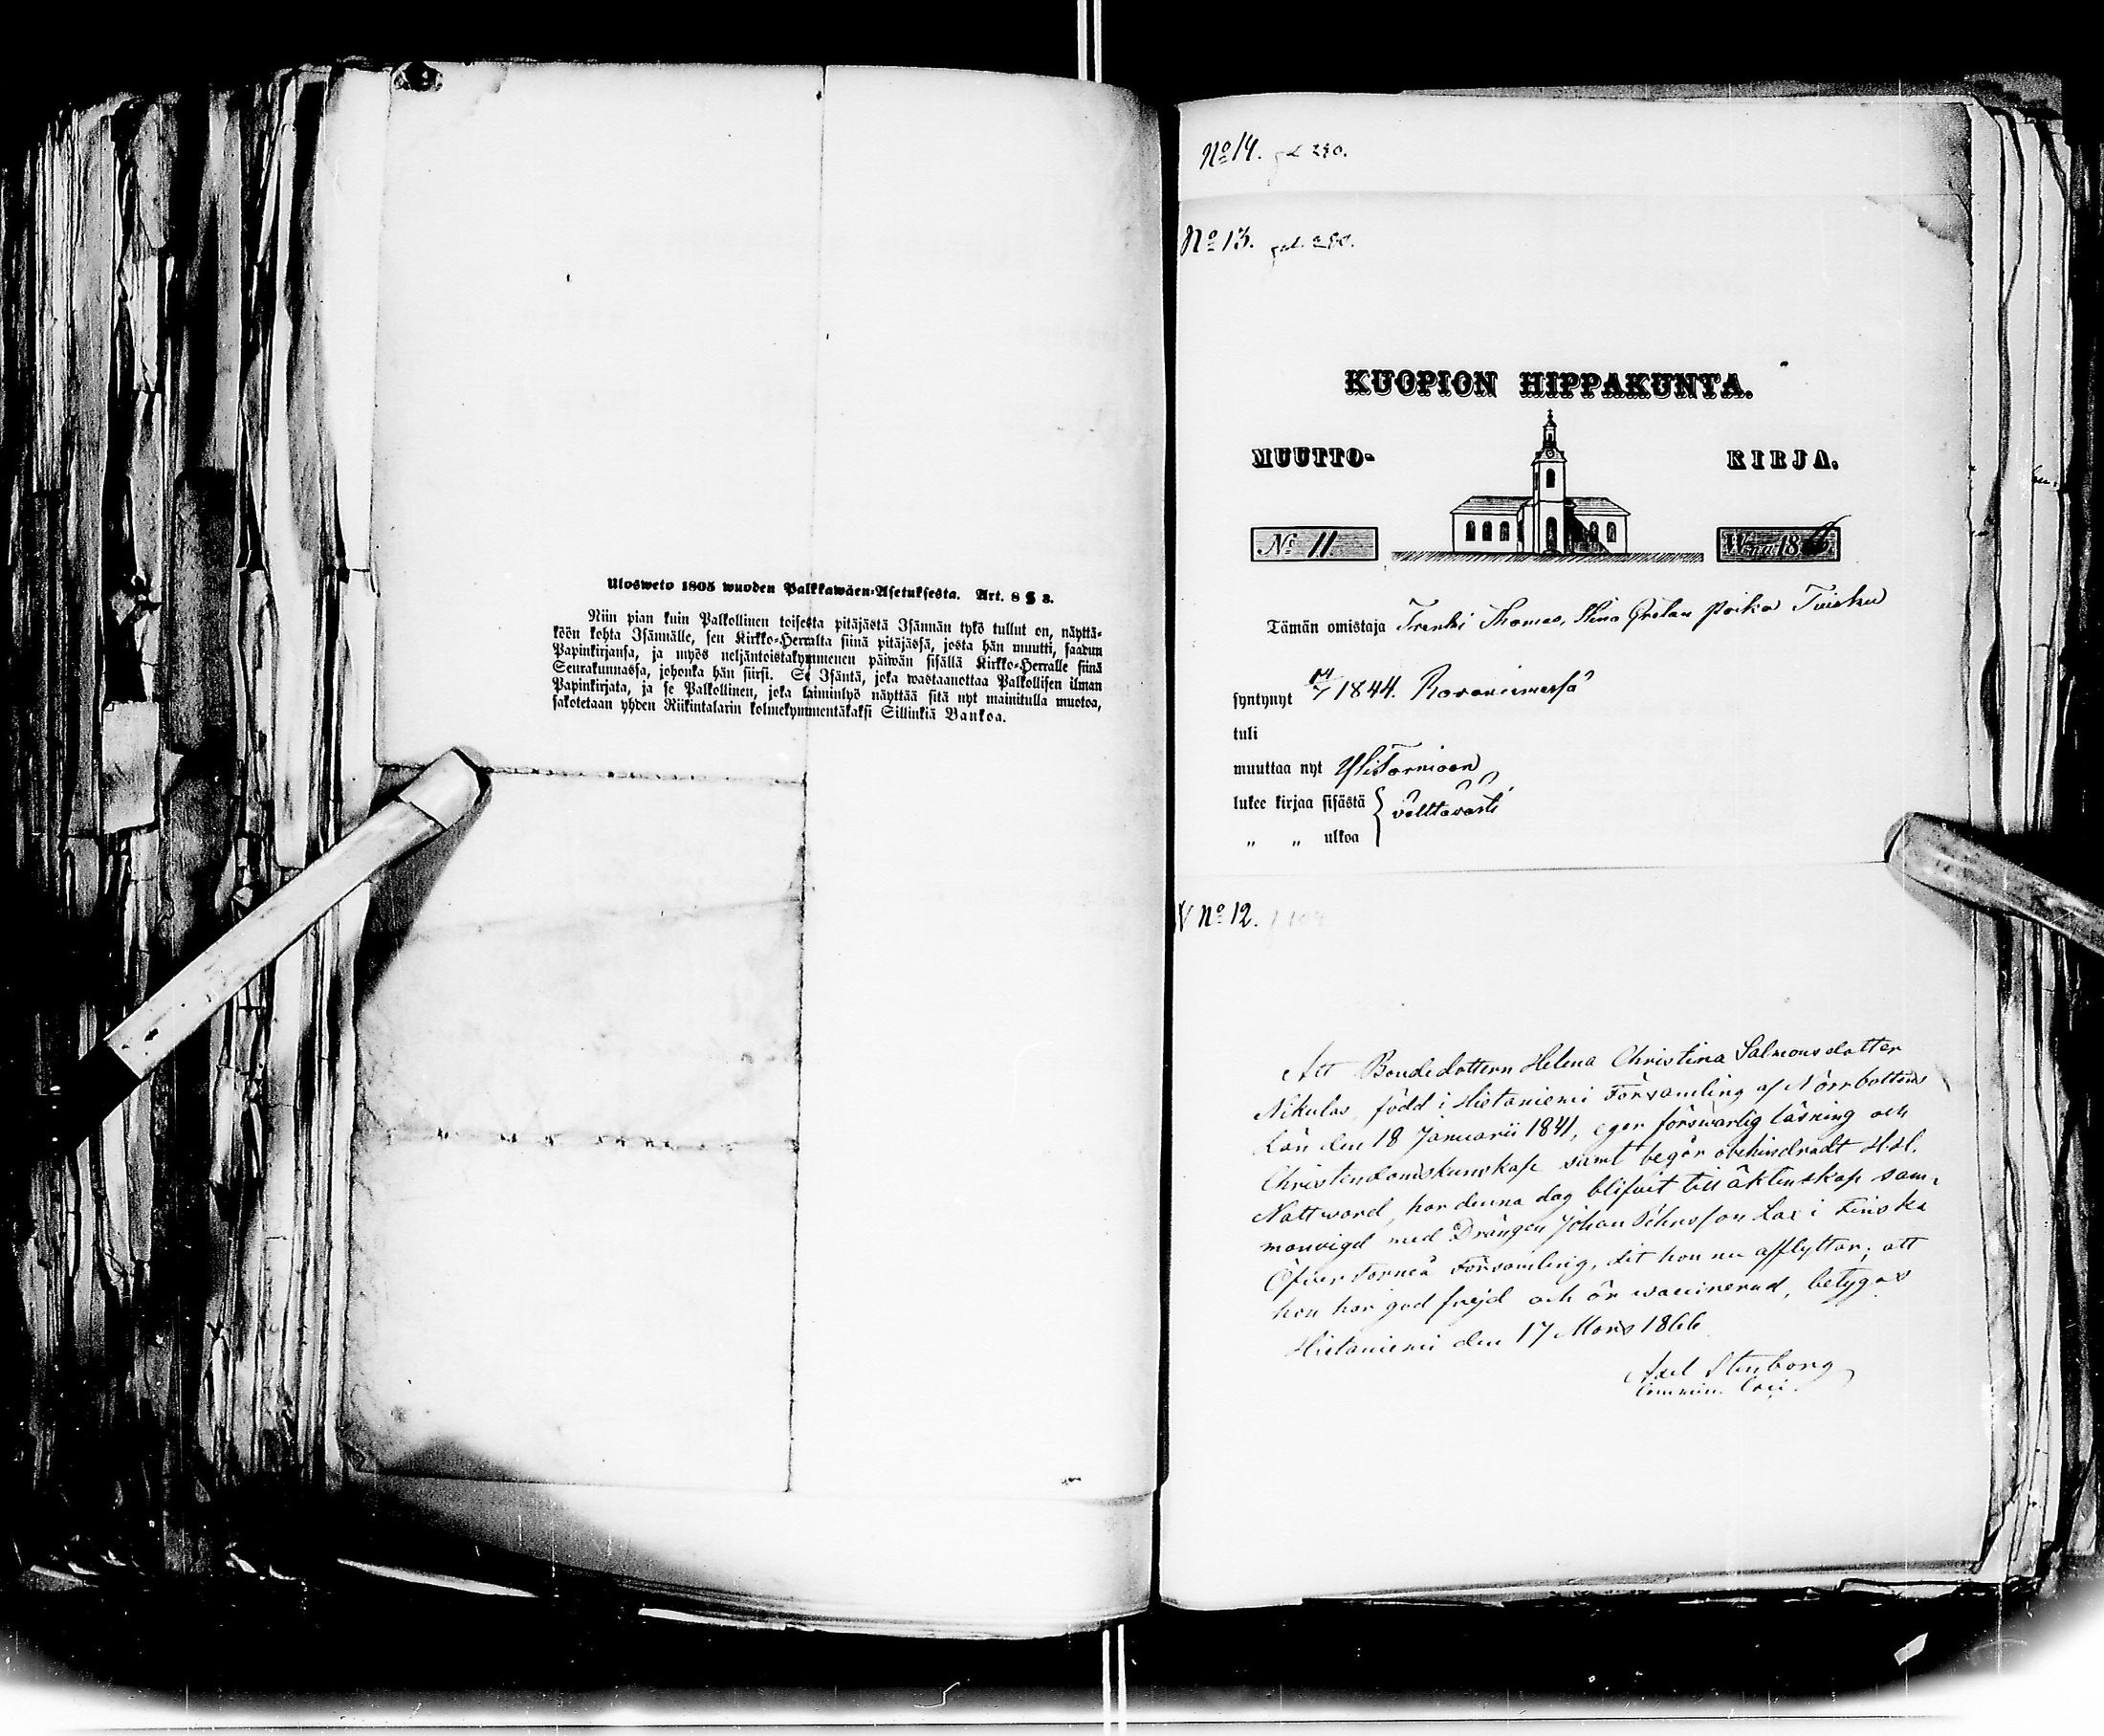 Ulosweto 1805 wuoden Palkkawäen-Asetuksesta. Art. 8 § 3.
Niin pian kuin Palkollinen toisesta pitäjästä Isännän tykö tullut on, näyttä-
köön kohta Isännälle, sen Kirkko-Herralta siinä pitäjässä, josta hän muutti, saadun
Papinkirjansa, ja myös neljäntoistakymmenen päiwän sisällä Kirkko-Herralle siinä
Seurakunnassa, johonka hän siirsi. Se Isäntä, joka wastaanottaa Palkollisen ilman
Papinkirjata, ja se Palkollinen, joka laiminlyö näyttää sitä nyt mainitulla muotoa,
sakotetaan yhden Riikintalarin kolmekymmentäkaksi Sillinkiä Bankoa.
No 14. 290.
No 13. pal. 290.
KUOPION HIPPAKUNTA.
MUUTTO- KIRJA.
No 11 W:na 186
Tämän omistaja Trenki Thomas, Stina Gretan poika
syntynyt 14/7 1844. Rovaniemessä
tuli
muuttaa nyt YliTornioon
lukee kirjaa sisästä { välttävästi
„ „ ulkoa
No 12.
Att Bondedottern Helena Christina Salmonsdotter
Nikulas, född i Hietaniemi Församling af Norrbottens
Län den 18 Januarii 1841, eger förswarlig läsning och
Christendomskunskap samt begår obehindradt H.H.
Nattward, har denna dag blifvit till äktenskap sam-
manvigd med Drängen Johan Johnsson Lax i Finska
Öfver Torneå Församling, dit hon nu afflyttar; att
hon har god frejd och är waccinerad, betygas
Hietaniemi den 17 Mars 1866
Axel Stenborg
Commin. loci.